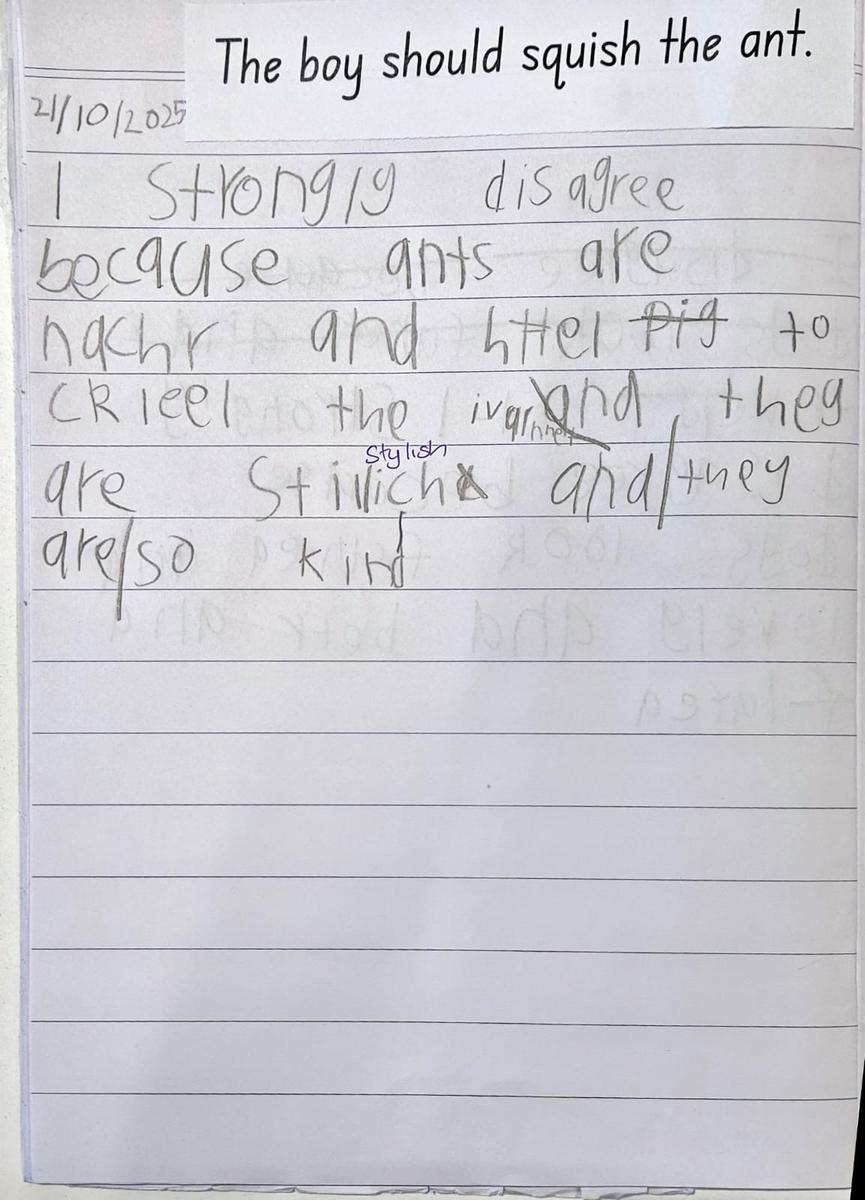 The boy should squish the ant.
21/10/2025
I strongly disagree
because ants are
nachr and httel pig to
ckieel the and they
stylish
are and they
are so kind